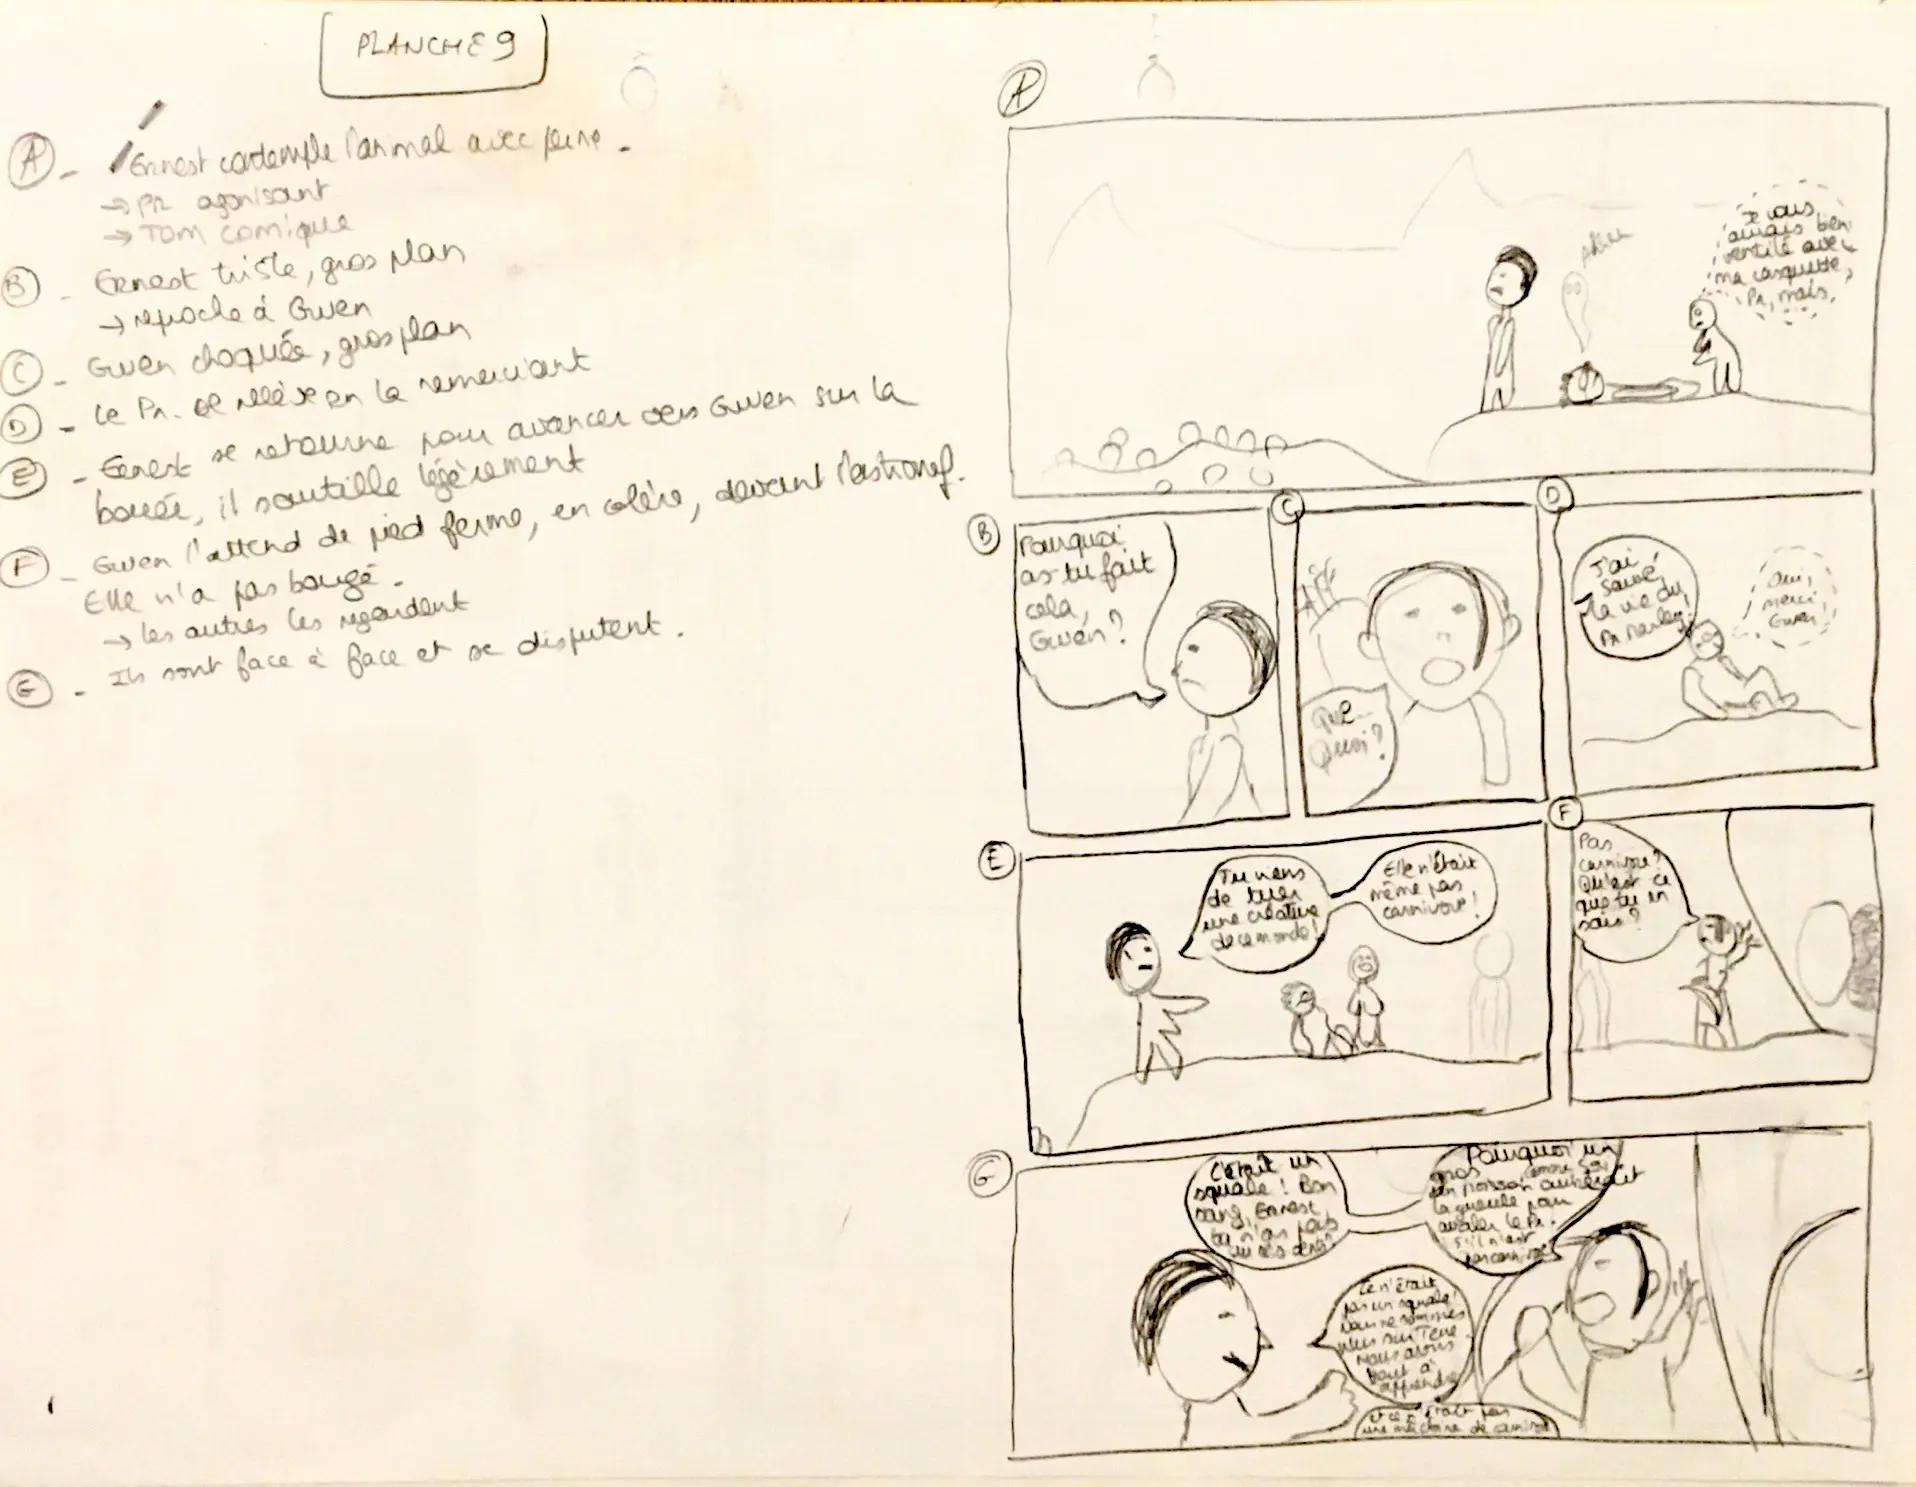 PLANCHE 9
A - Ernest contemple l'animal avec peine.
→ PR agonisant
→ Tom comique
B - Ernest triste, gros plan
→ reproche à Gwen
C - Gwen choquée, gros plan
D - Le Pr. se relève en la remerciant
E - Ernest se retourne pour avancer vers Gwen sur la
bouée, il sautille légèrement
F - Gwen l'attend de pied ferme, en colère, devant l'astronef.
Elle n'a pas bougé.
→ les autres les regardent
G - Ils sont face à face et se disputent.
A
Je vous
aurais bien
ventilé avec
ma casquette,
Pr, mais,
B
Pourquoi
as-tu fait
cela,
Gwen ?
C
Que
Quoi ?
D
J'ai
sauvé
la vie du
Pr
Oui,
merci
Gwen !
E
Tu viens
de tuer
une créature
de ce monde !
Elle n'était
même pas
carnivore !
F
Pas
carnivore ?
Qu'est ce
que tu en
sais ?
G
C'était un
squale ! Bon
sang, Ernest,
tu n'as pas
vu ses dents ?
Pourquoi un
gros comme ça
un poisson ouvrirait
la gueule pour
avaler le Pr.
s'il n'est
pas carnivore
Ce n'était
pas un squale !
Nous ne sommes
plus sur Terre.
Nous avons
tout à
apprendre
et ce n'était pas
une mâchoire de carnivore